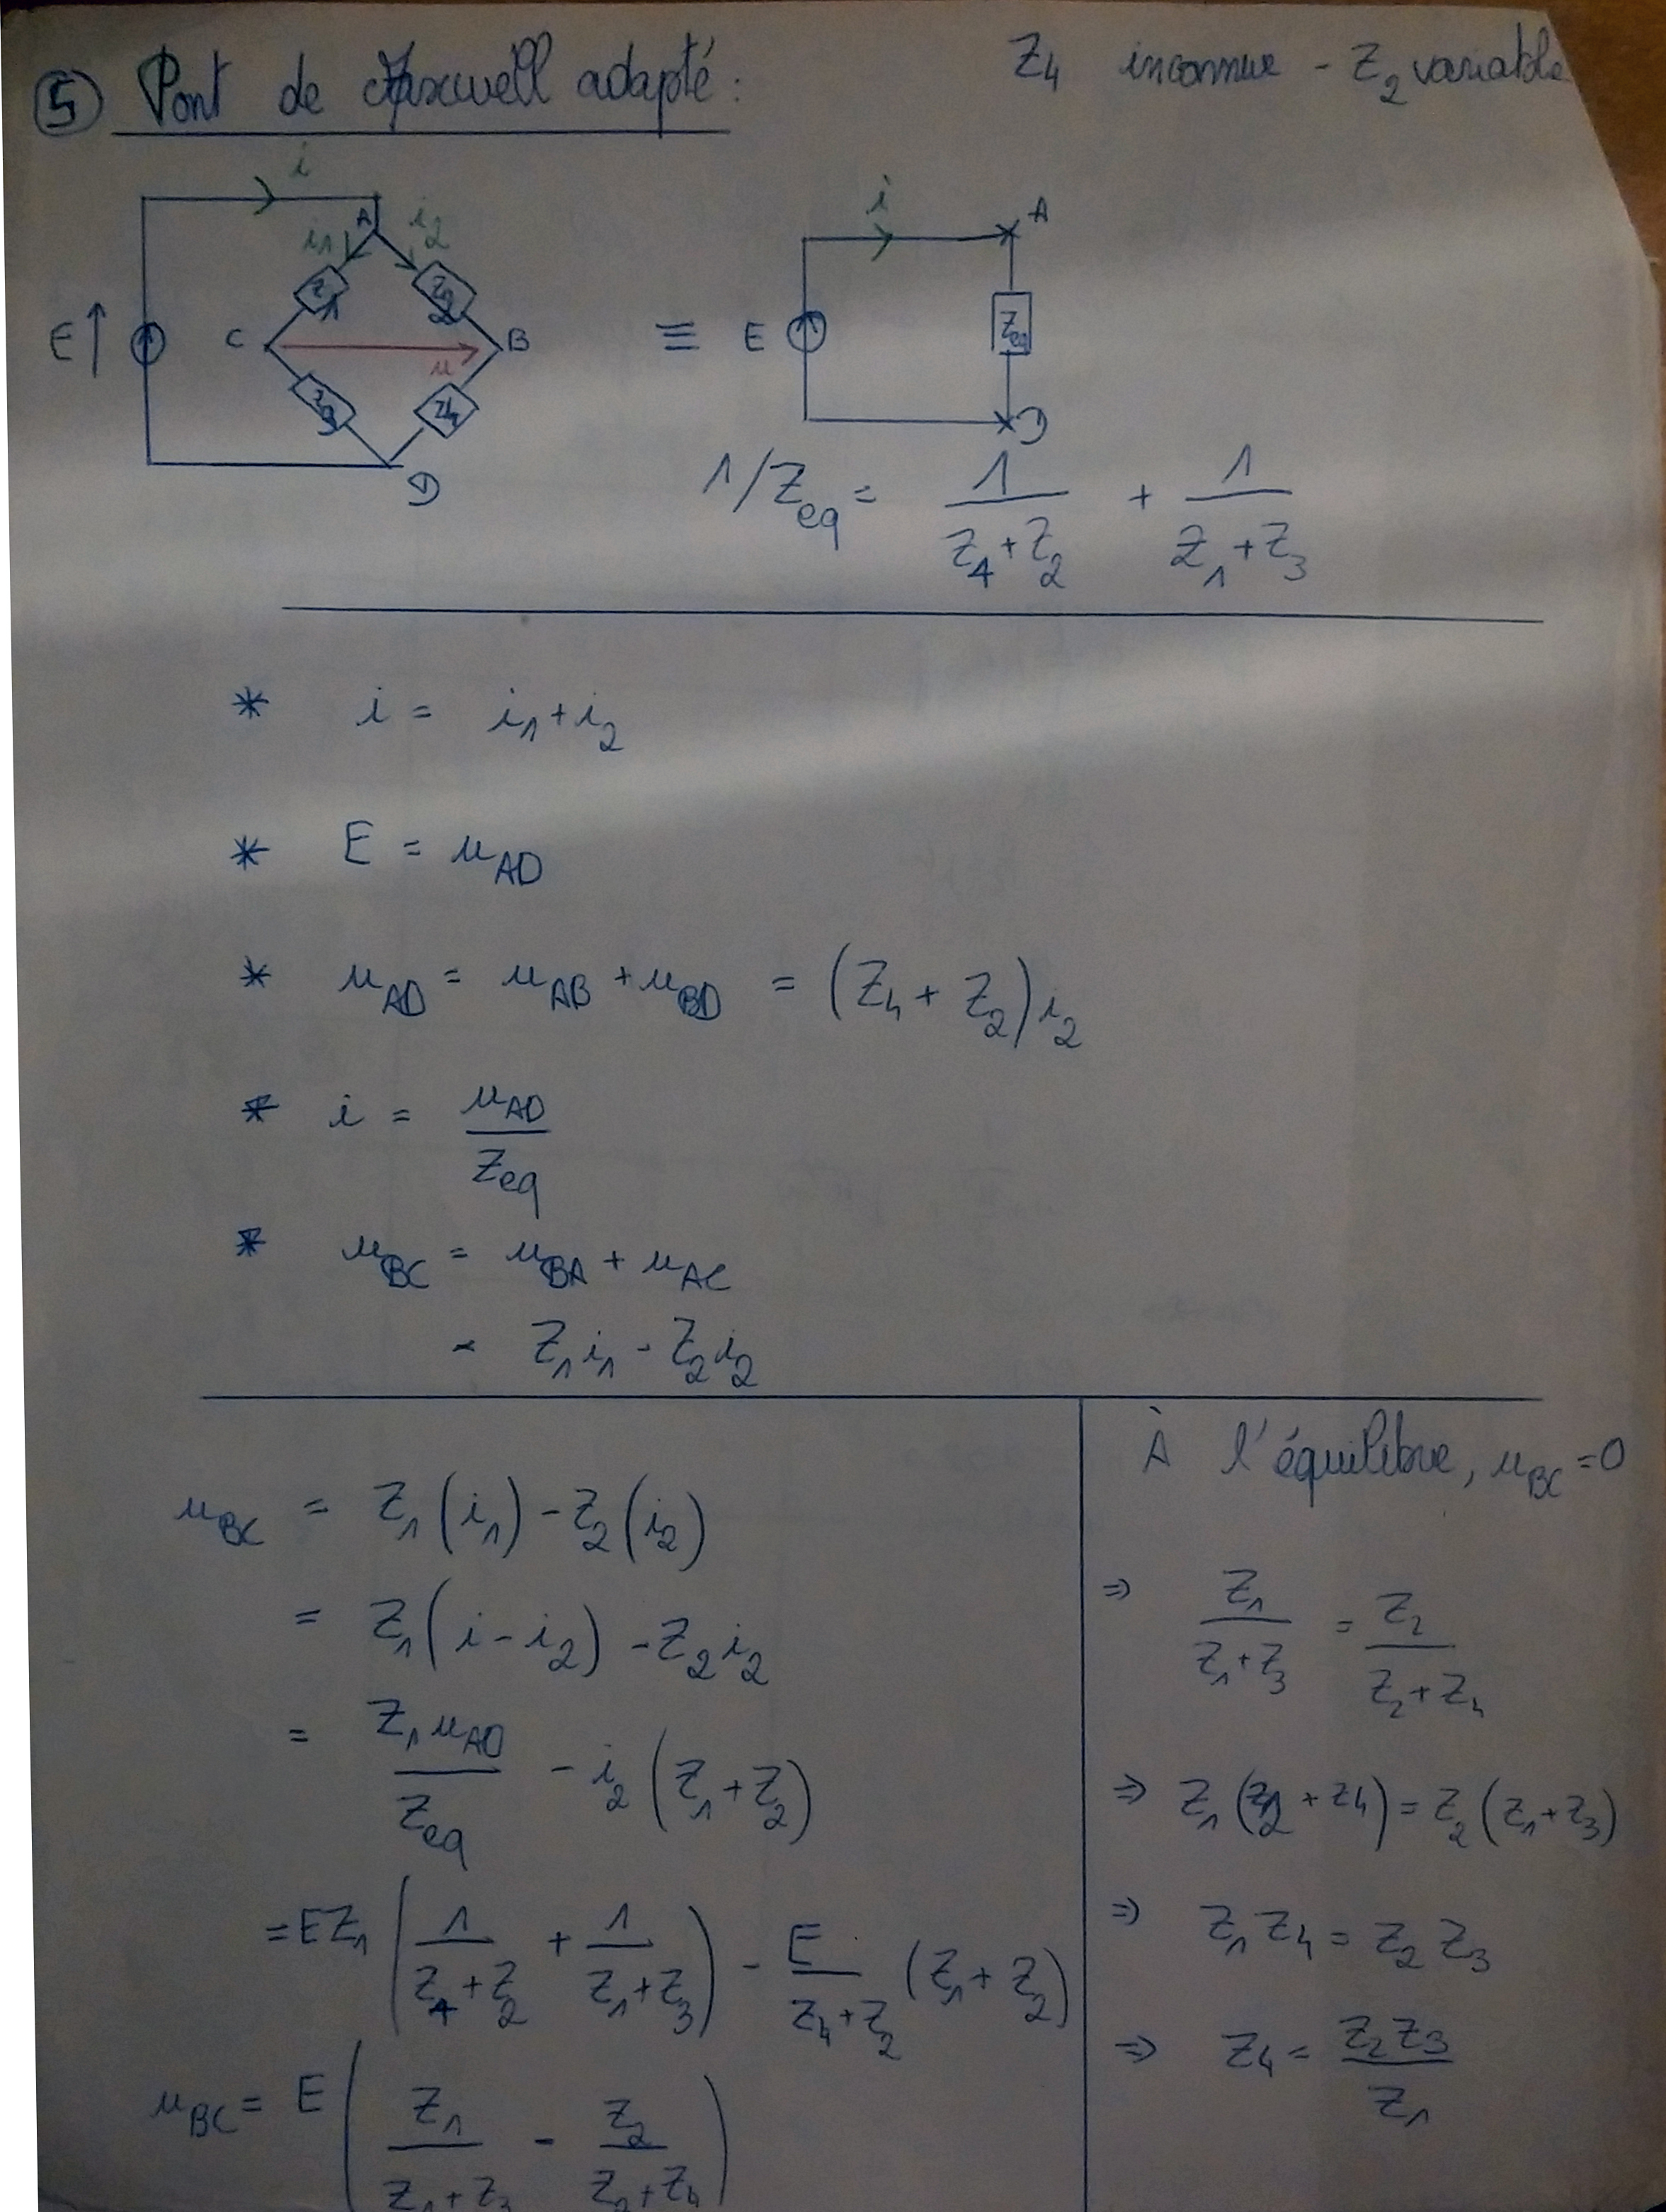 ⑤ Pont de Maxwell adapté : Z4 inconnue - Z2 variable
i
A
i1 i2
Z1 Z2
E C u B
Z3 Z4
D
≡
i
A
E Zeq
D
1/Zeq = 1/(Z4+Z2) + 1/(Z1+Z3)
* i = i1+i2
* E = uAD
* uAD = uAB + uBD = (Z4 + Z2) i2
* i = uAD/Zeq
* uBC = uBA + uAC
= Z1 i1 - Z2 i2
uBC = Z1 (i1) - Z2 (i2)
= Z1 (i - i2) - Z2 i2
= Z1 uAD/Zeq - i2 (Z1 + Z2)
= E Z1 (1/(Z4+Z2) + 1/(Z1+Z3)) - E/(Z4+Z2) (Z1 + Z2)
uBC = E (Z1/(Z1+Z3) - Z2/(Z2+Z4))
À l'équilibre, uBC = 0
⇒ Z1/(Z1+Z3) = Z2/(Z2+Z4)
⇒ Z1 (Z2 + Z4) = Z2 (Z1 + Z3)
⇒ Z1 Z4 = Z2 Z3
⇒ Z4 = Z2 Z3/Z1